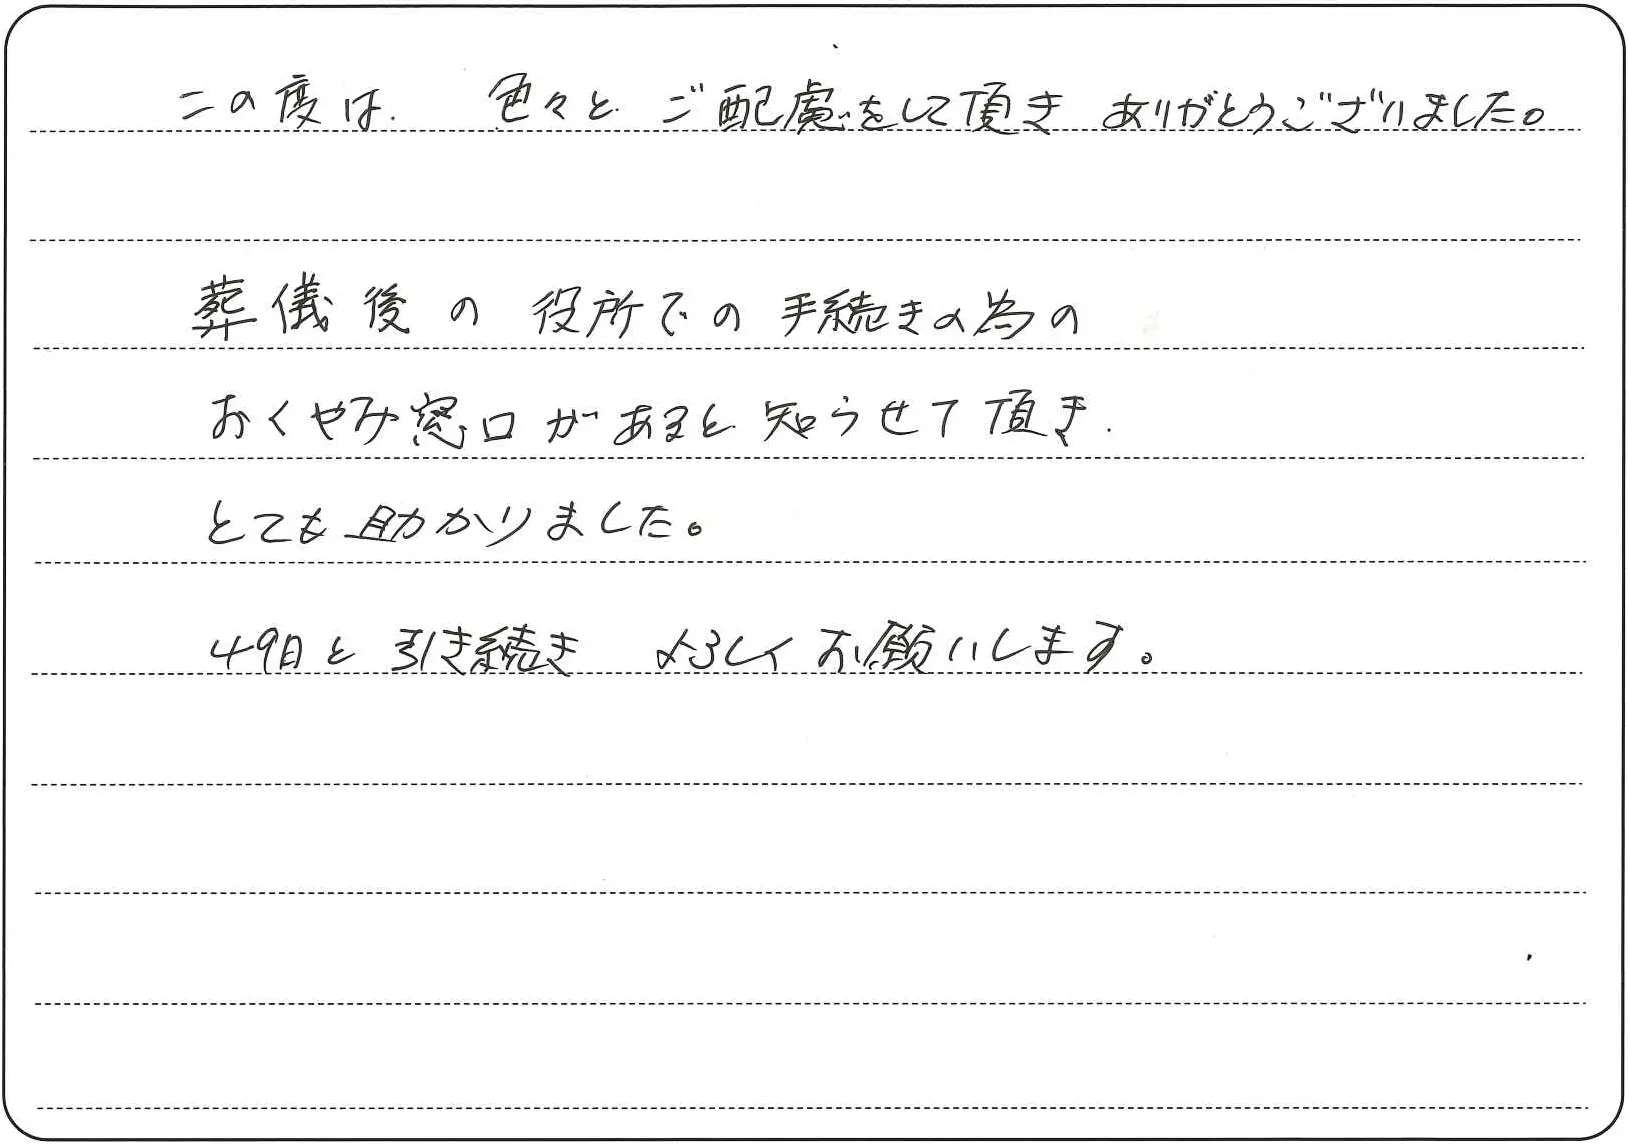 この度は. 色々と ご配慮をして頂き ありがとうございました。
葬儀後の 役所での 手続きの為の
おくやみ窓口があると 知らせて頂き.
とても助かりました。
49日と 引き続き よろしくお願いします。